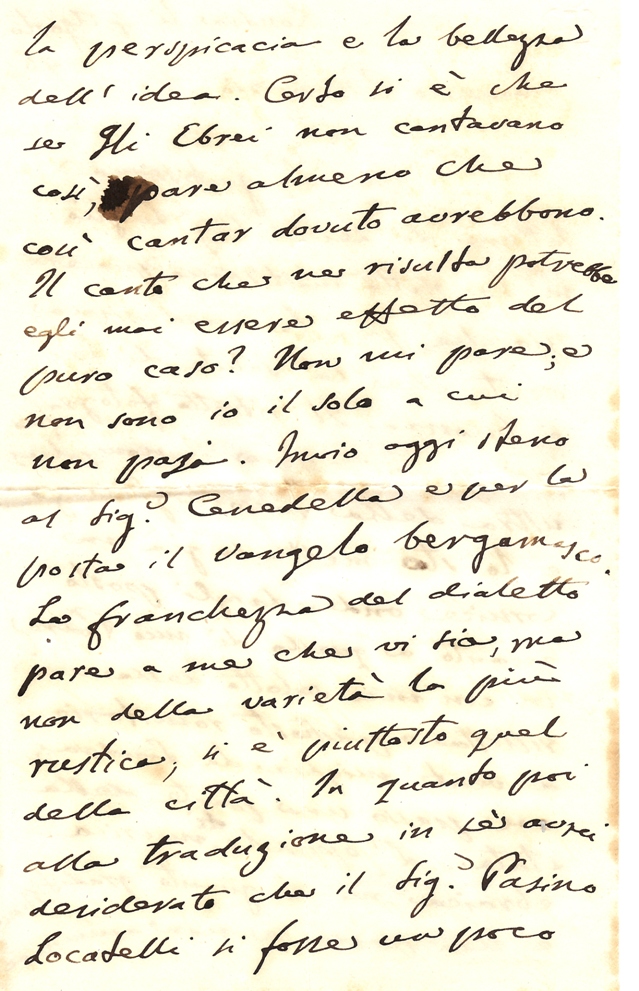 la perspicacia e la bellezza
dell' idea. Certo si è che
se gli Ebrei non cantavano
così, pare almeno che
così cantar dovuto avrebbono.
Il canto che ne risulta potrebbe
egli mai essere effetto del
puro caso? Non mi pare; e
non sono io il solo a cui
non paja. Invio oggi stesso
al Sigr. Cenedella e per la
posta il Vangelo bergamasco.
La franchezza del dialetto
pare a me che vi sia, ma
non della varietà la più
rustica; si è piuttosto quel
della città. In quanto poi
alla traduzione in sè avrei
desiderato che il Sigr. Pasino
Locatelli si fosse un poco